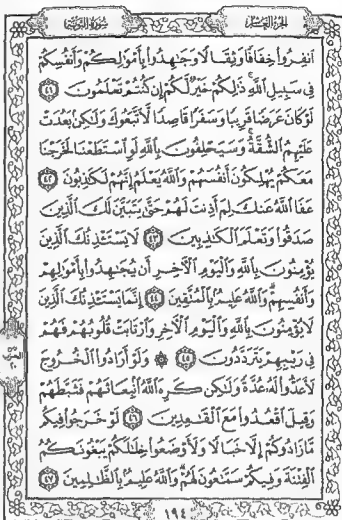 الجزء العاشر
سورة التوبة
انفروا خفافا وثقالا وجهدوا بأمولكم وأنفسكم
في سبيل الله ذلكم خير لكم إن كنتم تعلمون ٤١
لو كان عرضا قريبا وسفرا قاصدا لاتبعوك ولكن بعدت
عليهم الشقة وسيحلفون بالله لو استطعنا لخرجنا
معكم يهلكون أنفسهم والله يعلم إنهم لكذبون ٤٢
عفا الله عنك لم أذنت لهم حتى يتبين لك الذين
صدقوا وتعلم الكذبين ٤٣ لا يستءذنك الذين
يؤمنون بالله واليوم الآخر أن يجهدوا بأمولهم
وأنفسهم والله عليم بالمتقين ٤٤ إنما يستءذنك الذين
لا يؤمنون بالله واليوم الآخر وارتابت قلوبهم فهم
في ريبهم يترددون ٤٥ ۞ ولو أرادوا الخروج
لأعدوا له عدة ولكن كره الله انبعاثهم فثبطهم
وقيل اقعدوا مع القعدين ٤٦ لو خرجوا فيكم
ما زادوكم إلا خبالا ولأوضعوا خللكم يبغونكم
الفتنة وفيكم سمعون لهم والله عليم بالظلمين ٤٧
١٩٤